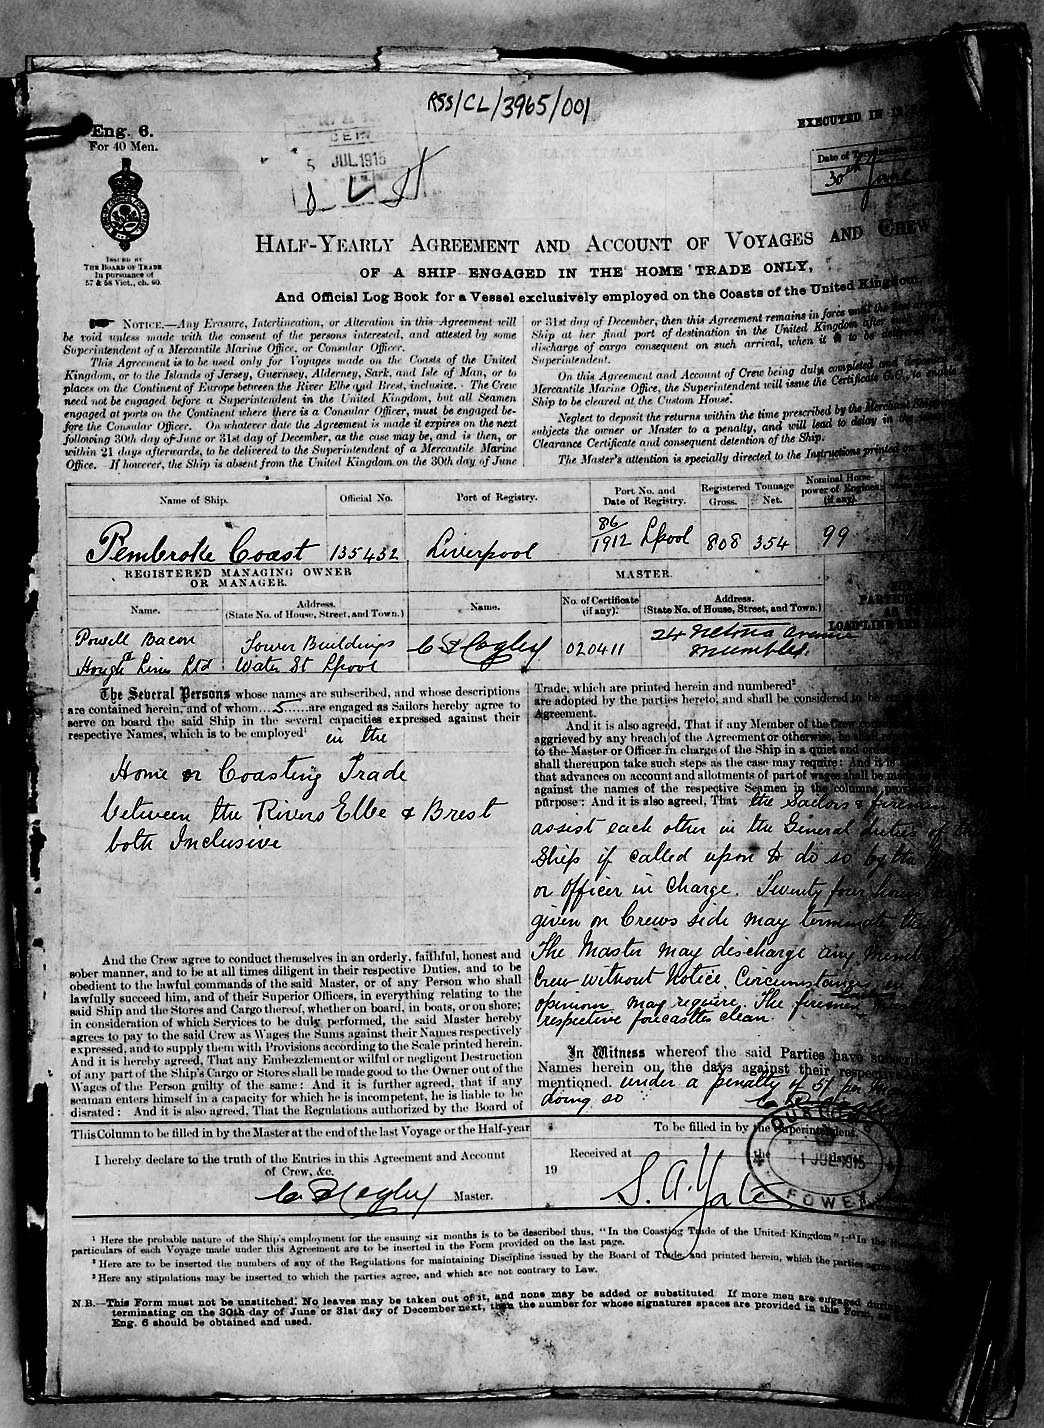 RSS/CL/3965/001
Eng. 6.
For 40 Men.
EXECUTED IN
5 JUL 1915
Date of
30th June
ISSUED BY
THE BOARD OF TRADE
In pursuance of
57 & 58 Vict., ch. 60.
HALF-YEARLY AGREEMENT AND ACCOUNT OF VOYAGES AND CREW
OF A SHIP ENGAGED IN THE HOME TRADE ONLY,
And Official Log Book for a Vessel exclusively employed on the Coasts of the United Kingdom.
NOTICE.—Any Erasure, Interlineation, or Alteration in this Agreement will
be void unless made with the consent of the persons interested, and attested by some
Superintendent of a Mercantile Marine Office, or Consular Officer.
This Agreement is to be used only for Voyages made on the Coasts of the United
Kingdom, or to the Islands of Jersey, Guernsey, Alderney, Sark, and Isle of Man, or to
places on the Continent of Europe between the River Elbe and Brest, inclusive. The Crew
need not be engaged before a Superintendent in the United Kingdom, but all Seamen
engaged at ports on the Continent where there is a Consular Officer, must be engaged be-
fore the Consular Officer. On whatever date the Agreement is made it expires on the next
following 30th day of June or 31st day of December, as the case may be, and is then, or
within 21 days afterwards, to be delivered to the Superintendent of a Mercantile Marine
Office. If however, the Ship is absent from the United Kingdom on the 30th day of June
or 31st day of December, then this Agreement remains in force until the first
Ship at her final port of destination in the United Kingdom after
discharge of cargo consequent on such arrival, when it is to be delivered
Superintendent.
On this Agreement and Account of Crew being duly completed and deposited
Mercantile Marine Office, the Superintendent will issue the Certificate C.C., to enable
Ship to be cleared at the Custom House.
Neglect to deposit the returns within the time prescribed by the Merchant
subjects the owner or Master to a penalty, and will lead to delay in the
Clearance Certificate and consequent detention of the Ship.
The Master's attention is specially directed to the Instructions printed on
Name of Ship. Official No. Port of Registry. Port No. and Date of Registry. Registered Tonnage Gross. Net. Nominal Horse-power of Engines (if any).
Pembroke Coast 135452 Liverpool 86/1912 Lpool 808 354 99
REGISTERED MANAGING OWNER OR MANAGER. MASTER.
Name. Address. (State No. of House, Street, and Town.) Name. No. of Certificate (if any). Address. (State No. of House, Street, and Town.)
PARTICULARS
LOAD LINE
Powell Bacon Tower Buildings 020411 24 Victoria Avenue
Hough Lines Ltd Water St Lpool Mumbles.
The Several Persons whose names are subscribed, and whose descriptions
are contained herein, and of whom 5 are engaged as Sailors hereby agree to
serve on board the said Ship in the several capacities expressed against their
respective Names, which is to be employed¹ in the
Home or Coasting Trade
between the Rivers Elbe & Brest
both Inclusive
And the Crew agree to conduct themselves in an orderly, faithful, honest and
sober manner, and to be at all times diligent in their respective Duties, and to be
obedient to the lawful commands of the said Master, or of any Person who shall
lawfully succeed him, and of their Superior Officers, in everything relating to the
said Ship and the Stores and Cargo thereof, whether on board, in boats, or on shore;
in consideration of which Services to be duly performed, the said Master hereby
agrees to pay to the said Crew as Wages the Sums against their Names respectively
expressed, and to supply them with Provisions according to the Scale printed herein.
And it is hereby agreed, That any Embezzlement or wilful or negligent Destruction
of any part of the Ship's Cargo or Stores shall be made good to the Owner out of the
Wages of the Person guilty of the same: And it is further agreed, that if any
seaman enters himself in a capacity for which he is incompetent, he is liable to be
disrated: And it is also agreed, That the Regulations authorized by the Board of
Trade, which are printed herein and numbered²
are adopted by the parties hereto, and shall be considered to be
Agreement.
And it is also agreed, That if any Member of the Crew
aggrieved by any breach of the Agreement or otherwise, he shall
to the Master or Officer in charge of the Ship in a quiet and orderly
shall thereupon take such steps as the case may require: And it is
that advances on account and allotments of part of wages shall be made
against the names of the respective Seamen in the columns provided for
purpose: And it is also agreed, That the Sailors & firemen
assist each other in the General duties of the
Ship if called upon to do so by the
or Officer in charge. Twenty four hours
given on Crews side may terminate the
The Master may discharge any Member
Crew without Notice. Circumstances
opinion may require. The firemen
respective forecastles clean.
In Witness whereof the said Parties have subscribed
Names herein on the days against their respective
mentioned. under a penalty of 5/
doing so
This Column to be filled in by the Master at the end of the last Voyage or the Half-year
I hereby declare to the truth of the Entries in this Agreement and Account
of Crew, &c.
Master.
To be filled in by the Superintendent.
Received at the day of
19
S. A. Yate
CUSTOMS
1 JUL 1915
FOWEY
¹ Here the probable nature of the Ship's employment for the ensuing six months is to be described thus, "In the Coasting Trade of the United Kingdom"; "In the
particulars of each Voyage made under this Agreement are to be inserted in the Form provided on the last page.
² Here are to be inserted the numbers of any of the Regulations for maintaining Discipline issued by the Board of Trade, and printed herein, which the parties agree
³ Here any stipulations may be inserted to which the parties agree, and which are not contrary to Law.
N.B.—This Form must not be unstitched. No leaves may be taken out of it, and none may be added or substituted. If more men are engaged during
terminating on the 30th day of June or 31st day of December next, than the number for whose signatures spaces are provided in this Form,
Eng. 6 should be obtained and used.